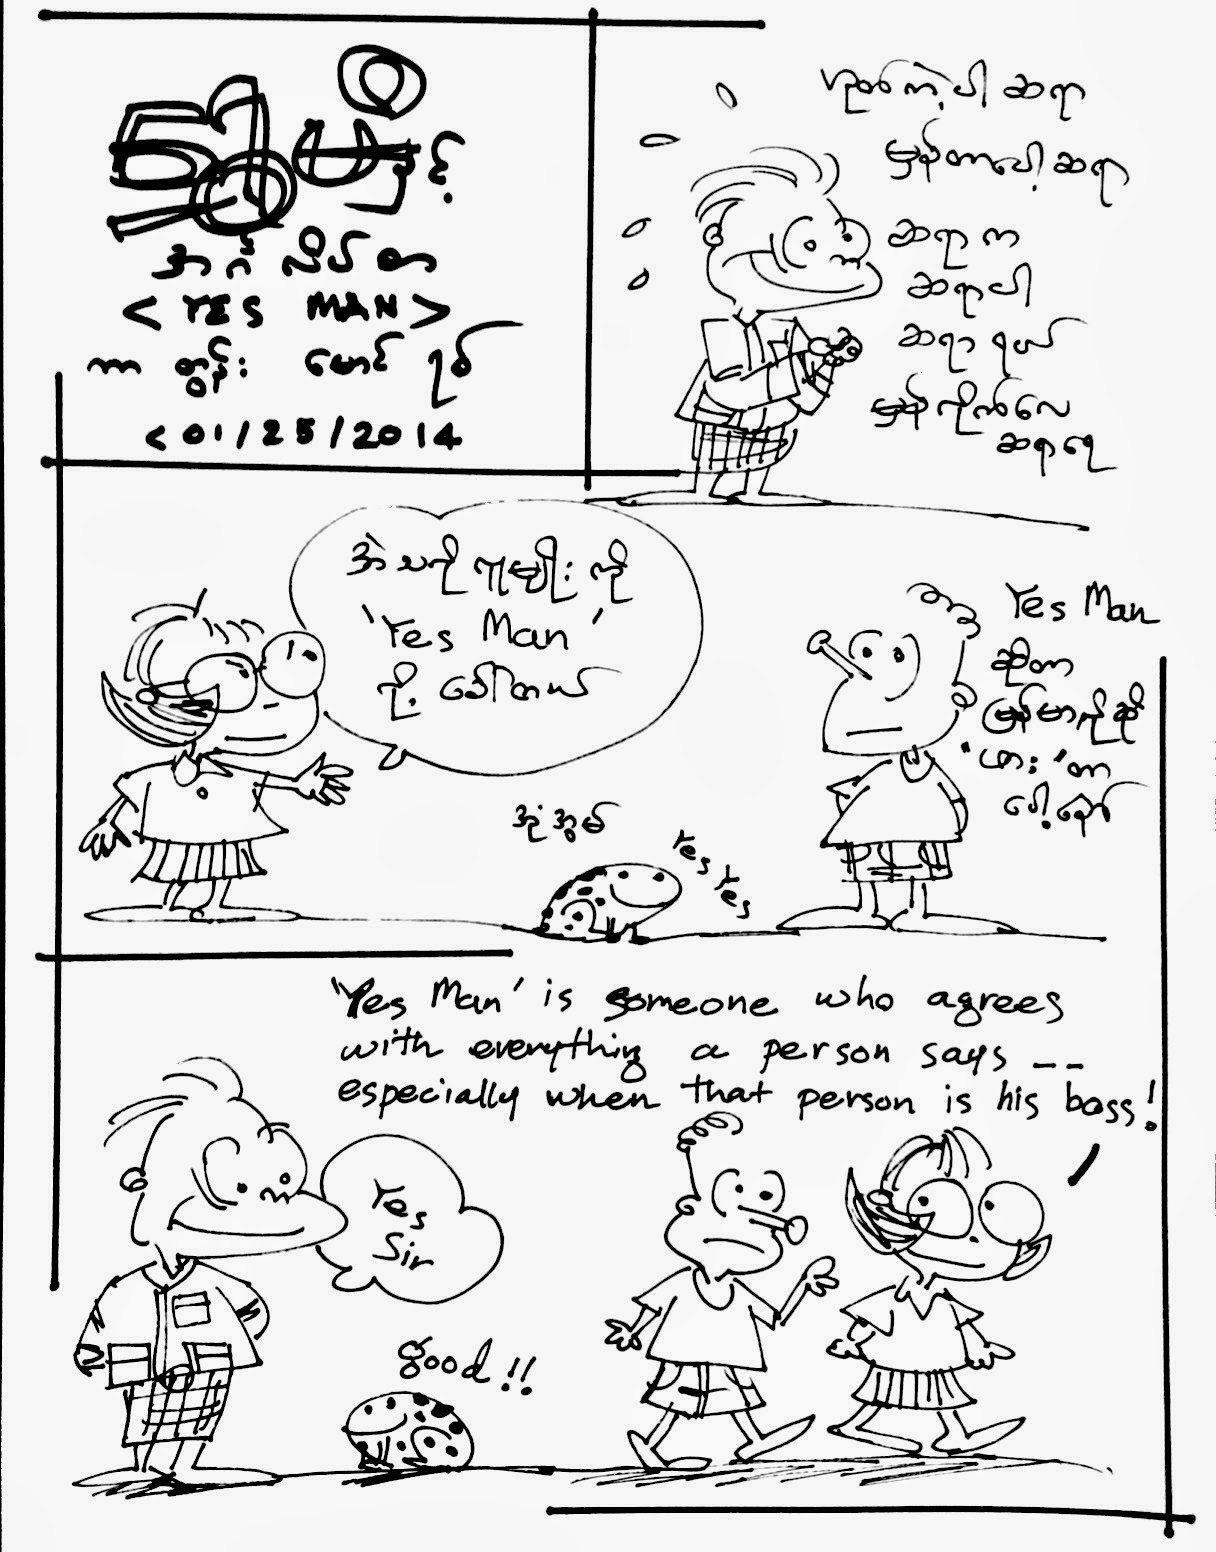 ၅ မိနစ်
အင်္ဂလိပ်စာ
< YES MAN >
ကာတွန်း မောင်ရစ်
< 01/25/2014
ဟုတ်ကဲ့ပါ ဆရာ
မှန်တာပေါ့ ဆရာ
ဆရာက
ဆရာပါ
ဆရာရယ်
မှန်လိုက်လေ
ဆရာရေ
အဲသလို လူမျိုးကို
'Yes Man'
လို့ ခေါ်တယ်
Yes Man
ဆိုတာ
မြန်မာလိုဆို
"ဖား" တာ
ပေါ့နော်
အုံအွမ်
Yes
Yes
'Yes Man' is someone who agrees
with everything a person says --
especially when that person is his boss!
Yes
Sir
good !!